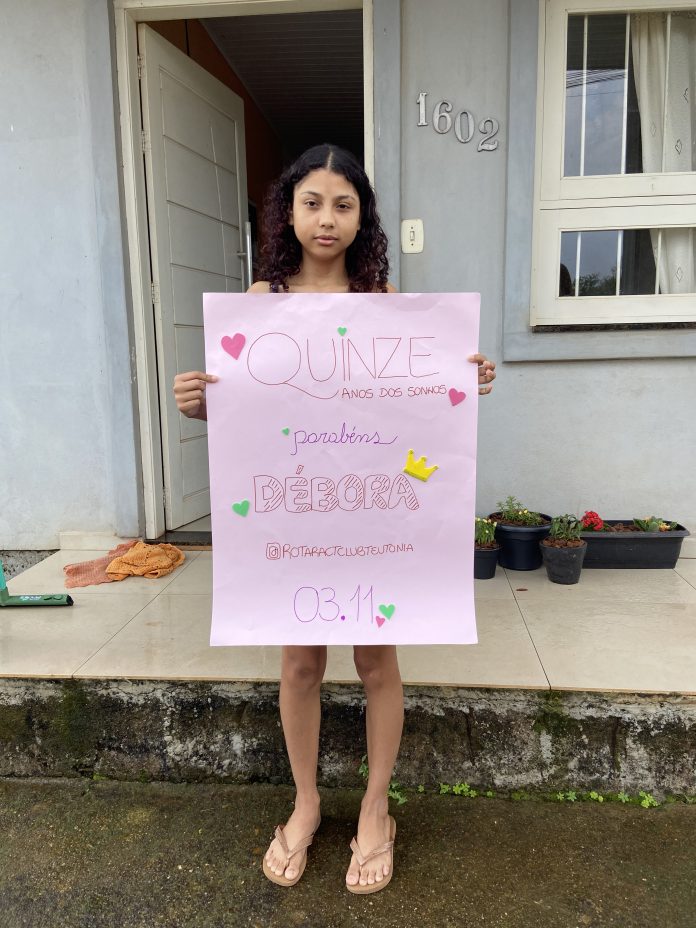 1602
QUINZE
ANOS DOS SONHOS
parabéns
DÉBORA
@ROTARACTCLUBTEUTONIA
03.11